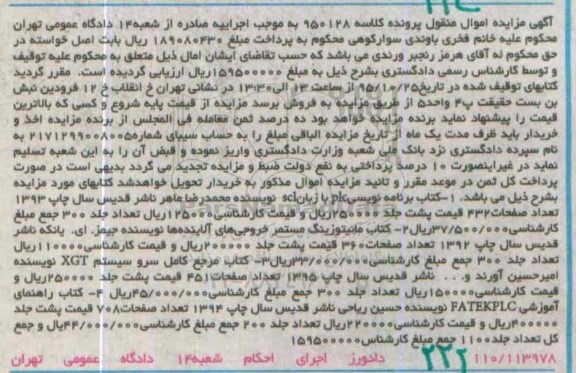 آگهی مزایده اموال منقول پرونده کلاسه ۹۵۰۱۲۸ به موجب اجراییه صادره از شعبه۱۴ دادگاه عمومی تهران
محکوم علیه خانم فخری باوندی سوارکوهی محکوم به پرداخت مبلغ ۱۸۹۰۸۰۴۳۰ ریال بابت اصل خواسته در
حق محکوم له آقای هرمز رنجبر ورندی می باشد که حسب تقاضای ایشان اموال ذیل متعلق به محکوم علیه توقیف
و توسط کارشناس رسمی دادگستری بشرح ذیل به مبلغ ۱۵۹۵۰۰۰۰۰ریال ارزیابی گردیده است. مقرر گردید
کتابهای توقیف شده در تاریخ۹۵/۱۰/۲۵از ساعت ۱۳ الی۱۳:۳۰در نشانی تهران خ انقلاب خ ۱۲ فرودین نبش
بن بست حقیقت پ۴ واحد۵ از طریق مزایده به فروش برسد مزایده از قیمت پایه شروع و کسی که بالاترین
قیمت را پیشنهاد نماید برنده مزایده خواهد بود ده درصد ثمن معامله فی المجلس از برنده مزایده اخذ و
خریدار باید ظرف مدت یک ماه از تاریخ مزایده الباقی مبلغ را به حساب سیبای شماره۲۱۷۱۲۹۹۰۰۸۰۰۵ به
نام سپرده دادگستری نزد بانک ملی شعبه وزارت دادگستری واریز نموده و قبض آن را به این شعبه تسلیم
نماید در غیراینصورت ۱۰ درصد پرداختی به نفع دولت ضبط و مزایده تجدید می گردد بدیهی است در صورت
پرداخت کل ثمن در موعد مقرر و تائید مزایده اموال مذکور به خریدار تحویل خواهدشد کتابهای مورد مزایده
بشرح ذیل می باشد. ۱-کتاب برنامه نویسیplc با زبانscl نویسنده محمدرضا ماهر ناشر قدیس سال چاپ ۱۳۹۳
تعداد صفحات۴۳۲ قیمت پشت جلد ۲۵۰۰۰۰ریال و قیمت کارشناسی۱۲۵۰۰۰ریال تعداد جلد ۳۰۰ جمع مبلغ
کارشناسی۳۷/۵۰۰/۰۰۰ریال۲- کتاب مانیتورینگ مستمر خروجی‌های آلاینده‌ها نویسنده جیمز. ای. یانکه ناشر
قدیس سال چاپ ۱۳۹۲ تعداد صفحات۳۶۰ قیمت پشت جلد ۲۰۰۰۰۰ریال و قیمت کارشناسی۱۱۰۰۰۰ریال
تعداد جلد ۳۰۰ جمع مبلغ کارشناسی۳۳/۰۰۰/۰۰۰ریال۳- کتاب مرجع کامل سرو سیستم XGT نویسنده
امیرحسین آورند و... ناشر قدیس سال چاپ ۱۳۹۵ تعداد صفحات۴۵۱ قیمت پشت جلد ۲۵۰۰۰۰ریال و
قیمت کارشناسی۱۵۰۰۰۰ریال تعداد جلد ۳۰۰ جمع مبلغ کارشناسی۴۵/۰۰۰/۰۰۰ریال ۴- کتاب راهنمای
آموزشی FATEKPLC نویسنده حسین ریاحی ناشر قدیس سال چاپ ۱۳۹۴ تعداد صفحات۷۰۸ قیمت پشت جلد
۴۰۰۰۰۰ریال و قیمت کارشناسی۲۲۰۰۰۰ریال تعداد جلد ۲۰۰ جمع مبلغ کارشناسی۴۴/۰۰۰/۰۰۰ریال و جمع
کل تعداد جلد۱۱۰۰ جمع مبلغ کارشناس۱۵۹۵۰۰۰۰۰
۱۱۰/۱۱۳۹۷۸ دادورز اجرای احکام شعبه۱۴ دادگاه عمومی تهران